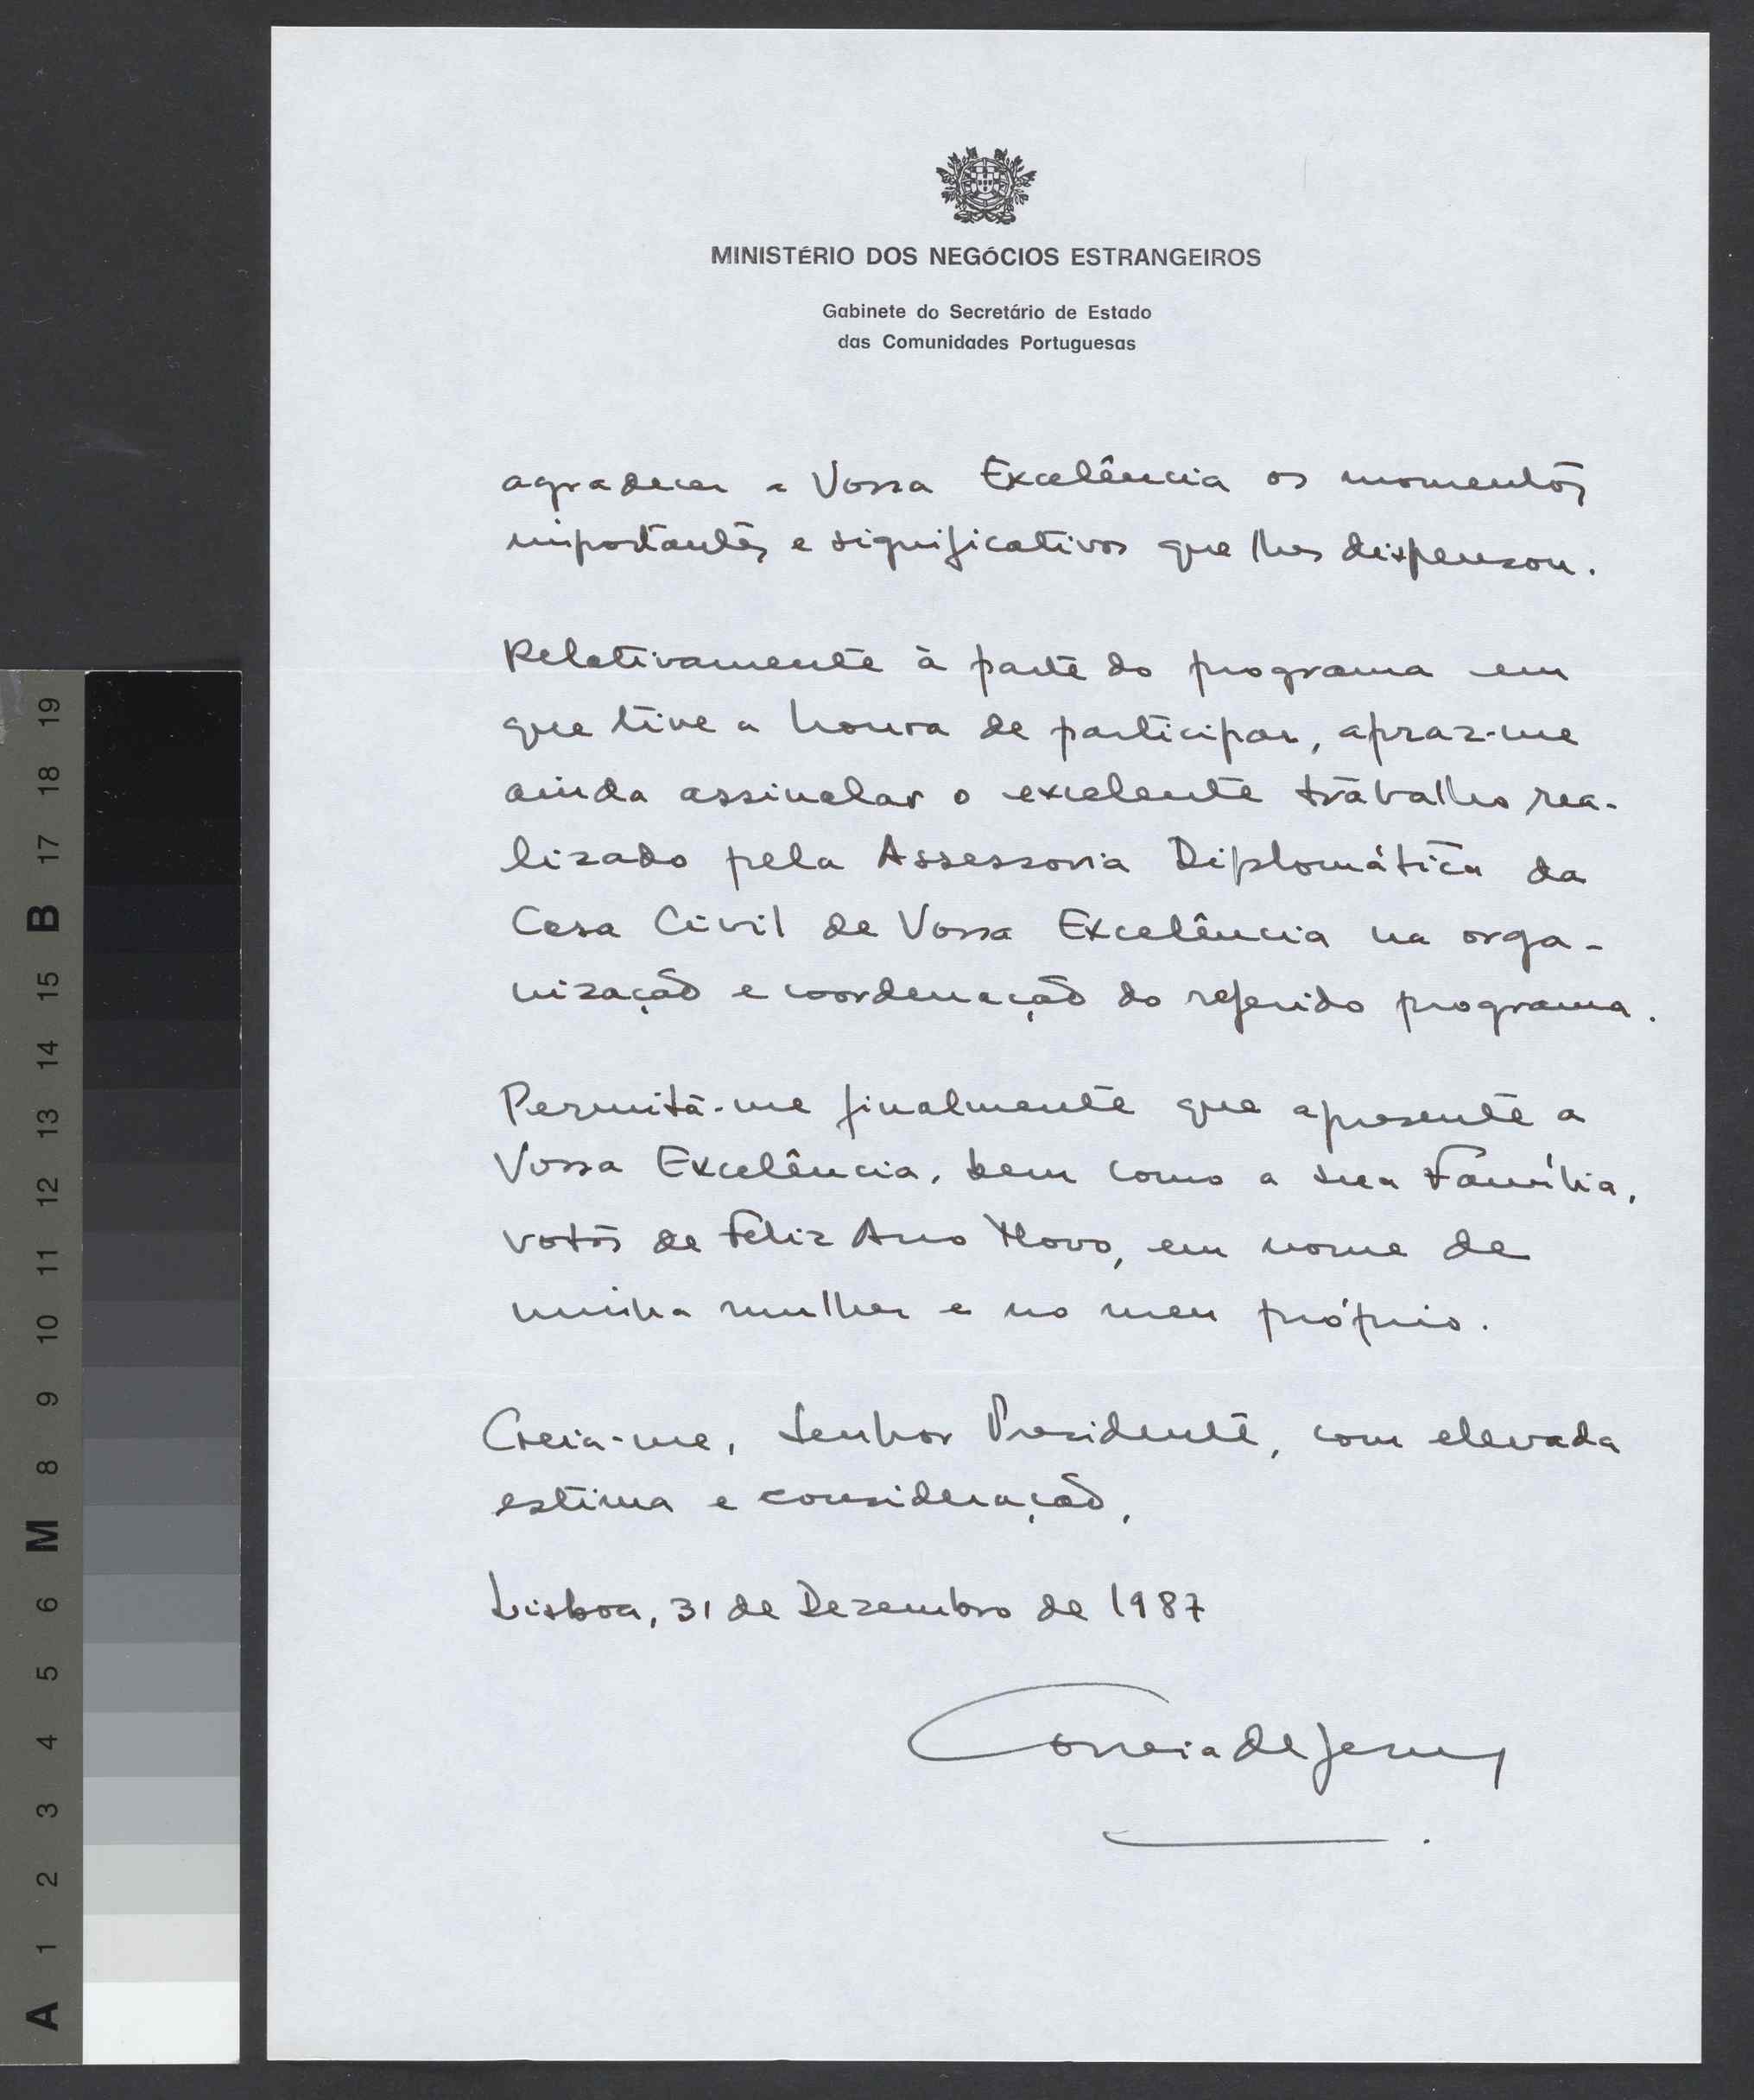 MINISTÉRIO DOS NEGÓCIOS ESTRANGEIROS
Gabinete do Secretário de Estado
das Comunidades Portuguesas
agradecer a Vossa Excelência os momentos
importantes e significativos que lhes dispensou.
Relativamente à parte do programa em
que tive a honra de participar, apraz-me
ainda assinalar o excelente trabalho rea-
lizado pela Assessoria Diplomática da
Casa Civil de Vossa Excelência na orga-
nização e coordenação do referido programa.
Permita-me finalmente que apresente a
Vossa Excelência, bem como a sua Família,
votos de Feliz Ano Novo, em nome de
minha mulher e no meu próprio.
Creia-me, Senhor Presidente, com elevada
estima e consideração,
Lisboa, 31 de Dezembro de 1987
Correia de Jesus
A 1 2 3 4 5 6 M 8 9 10 11 12 13 14 15 B 17 18 19